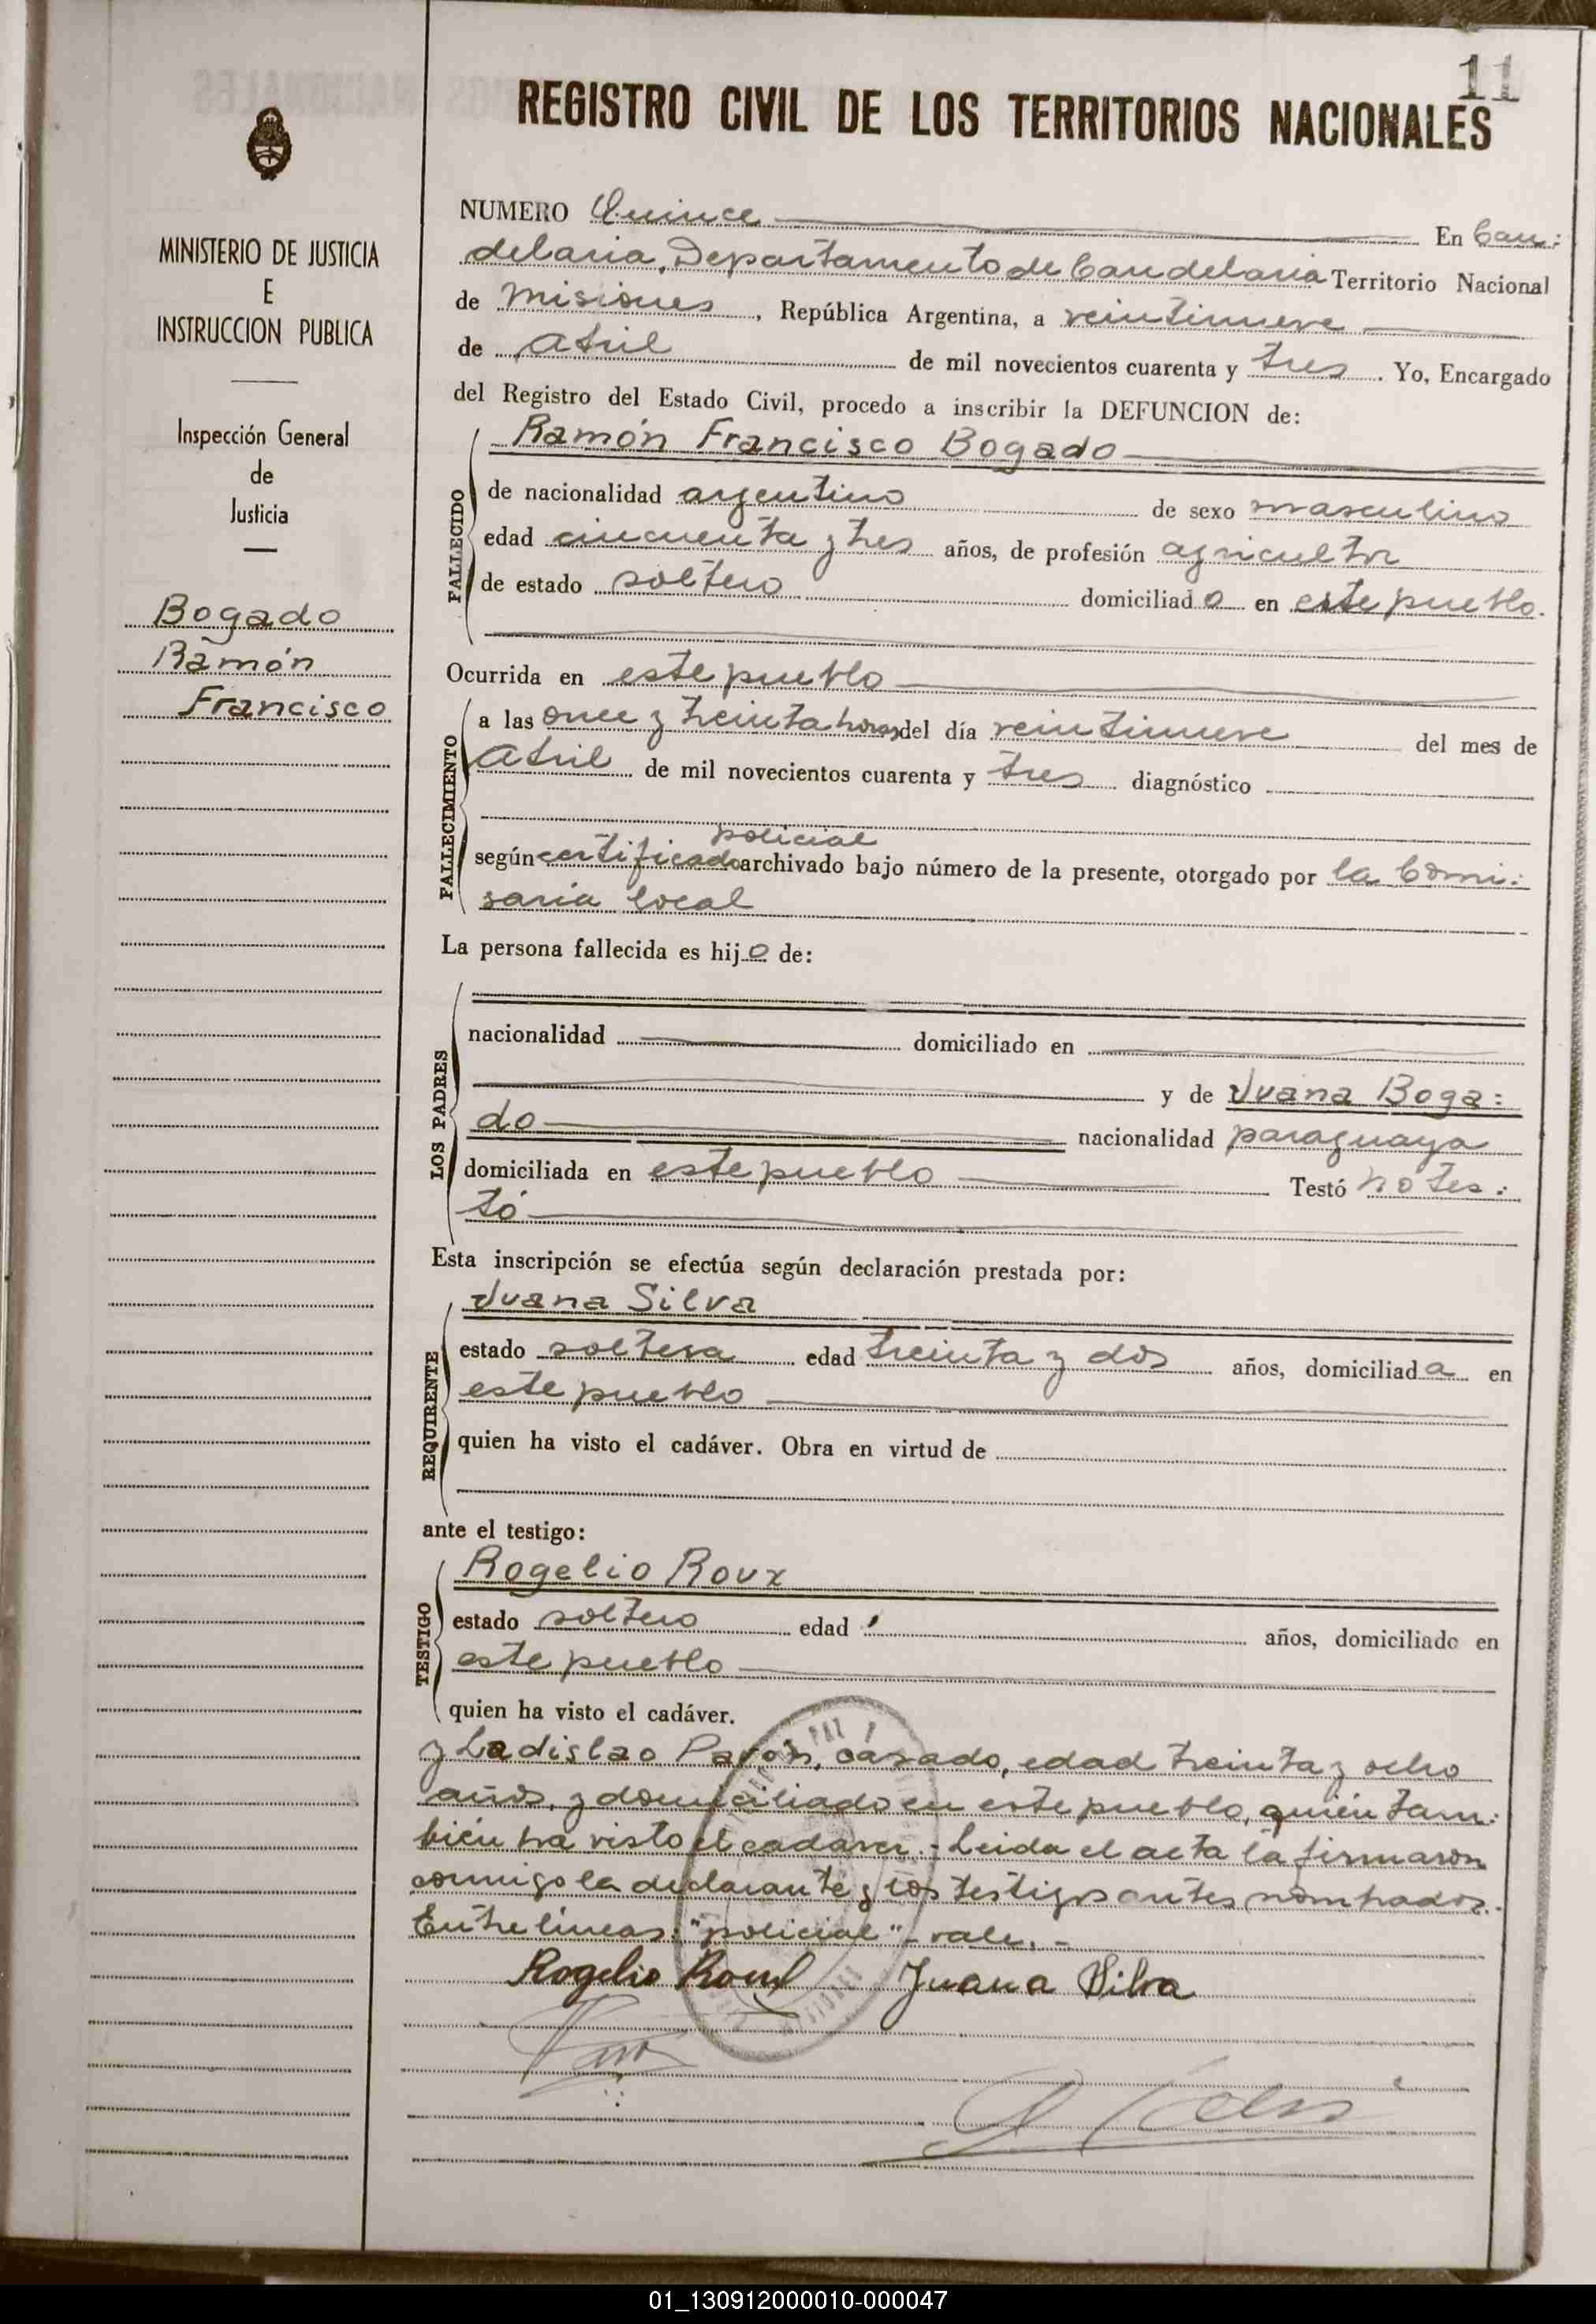 11
REGISTRO CIVIL DE LOS TERRITORIOS NACIONALES
MINISTERIO DE JUSTICIA
E
INSTRUCCION PUBLICA
Inspección General
de
Justicia
Bogado
Ramón
Francisco
NUMERO Quince En Can:
delaria, Departamento de Candelaria Territorio Nacional
de Misiones, República Argentina, a veintinueve
de Abril de mil novecientos cuarenta y tres. Yo, Encargado
del Registro del Estado Civil, procedo a inscribir la DEFUNCION de:
FALLECIDO
Ramón Francisco Bogado
de nacionalidad argentino de sexo masculino
edad cincuenta y tres años, de profesión agricultor
de estado soltero domiciliado en este pueblo.
Ocurrida en este pueblo
FALLECIMIENTO
a las once y treinta horas, del día veintinueve del mes de
Abril de mil novecientos cuarenta y tres diagnóstico
policial
según certificado archivado bajo número de la presente, otorgado por la Comi:
saría local
La persona fallecida es hijo de:
LOS PADRES
nacionalidad domiciliado en
y de Juana Boga:
do nacionalidad paraguaya
domiciliada en este pueblo Testó no tes:
tó
Esta inscripción se efectúa según declaración prestada por:
REQUIRENTE
Juana Silva
estado soltera edad treinta y dos años, domiciliada en
este pueblo
quien ha visto el cadáver. Obra en virtud de
ante el testigo:
TESTIGO
Rogelio Roux
estado soltero edad años, domiciliado en
este pueblo
quien ha visto el cadáver.
y Ladislao casado, edad treinta y ocho
años, y domiciliado en este pueblo, quién tam:
bién ha visto el cadaver.- Leida el acta la firmaron
conmigo la declarante y los testigos antes nombrados.-
Entre líneas: "policial" - vale. -
Rogelio Roux Juana Silva
01_130912000010-000047